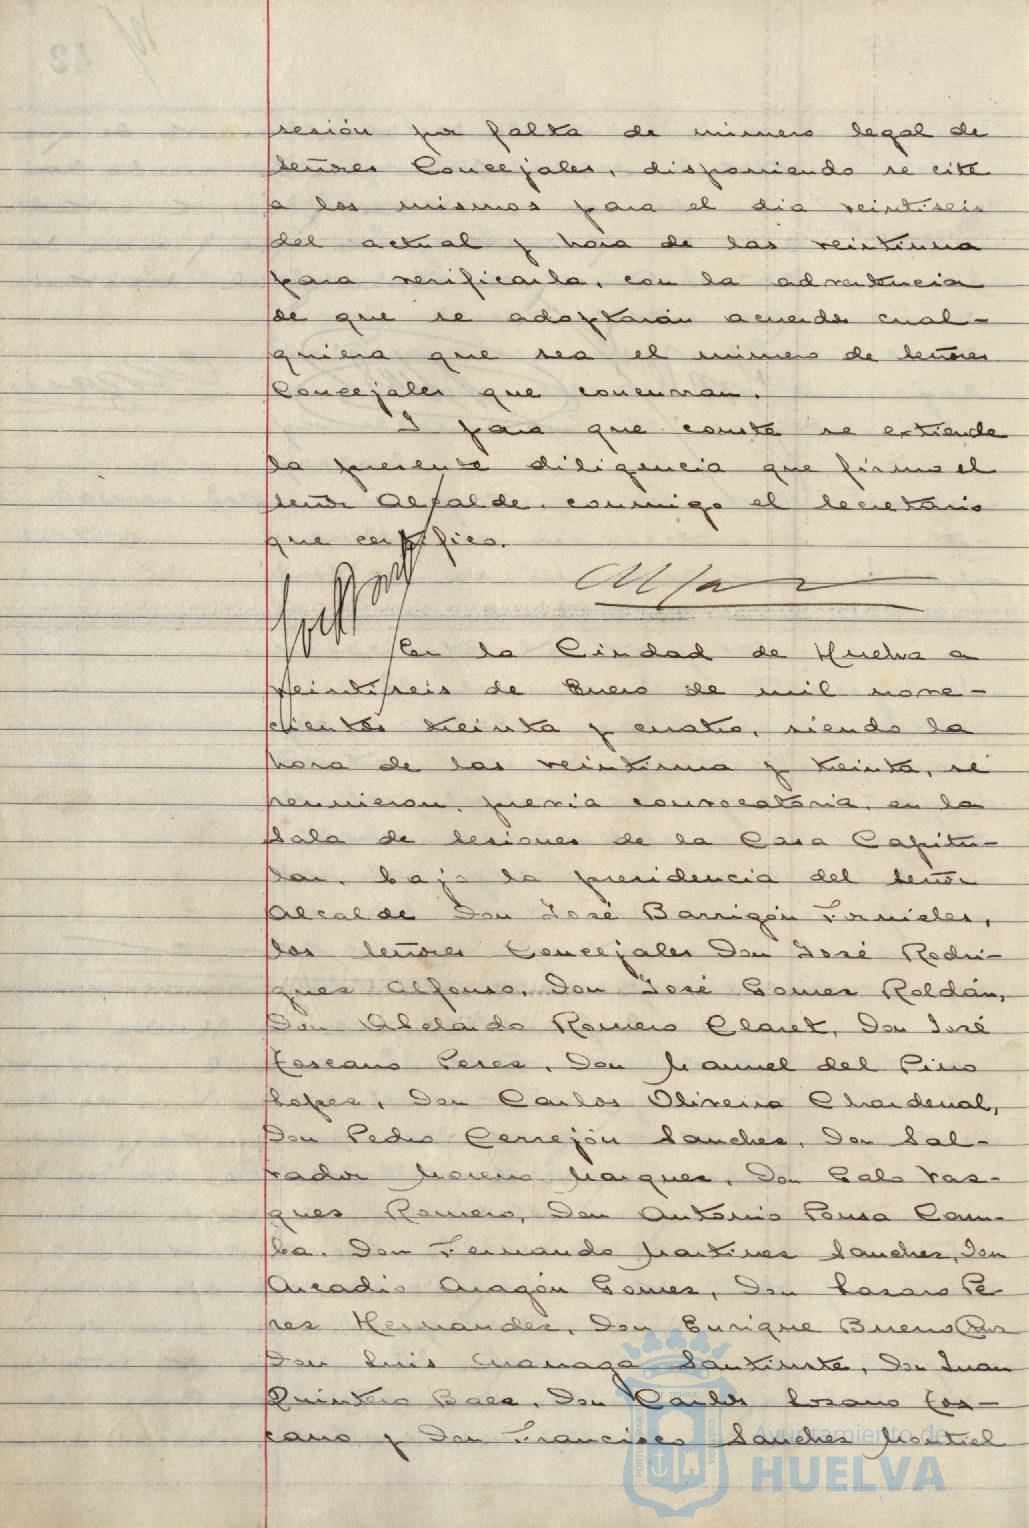 sesión por falta de número legal de
señores Concejales, disponiendo se cite
a los mismos para el día veintiseis
del actual y hora de las veintiuna
para verificarla, con la advertencia
de que se adoptarán acuerdos cual-
quiera que sea el número de señores
Concejales que concurran.
Y para que conste se extiende
la presente diligencia que firma el
señor Alcalde, conmigo el Secretario
que certifico.
En la Ciudad de Huelva a
veintiseis de Enero de mil nove-
cientos treinta y cuatro, siendo la
hora de las veintiuna y treinta, se
reunieron, previa convocatoria, en la
Sala de Sesiones de la Casa Capitu-
lar, bajo la presidencia del señor
Alcalde Don José Barrigón Fornieles,
los señores Concejales Don José Rodri-
guez Alfonso, Don José Gomez Roldán,
Don Abelardo Romero Claret, Don José
Toscano Perez, Don Manuel del Pino
Lopez, Don Carlos Oliveira Chardenal,
Don Pedro Cerrejón Sanchez, Don Sal-
vador Moreno Marquez, Don Galo Vaz-
quez Romero, Don Antonio Pousa Cam-
ba, Don Fernando Martinez Sanchez, Don
Arcadio Aragón Gomez, Don Lazaro Pe-
rez Hernandez, Don Enrique Bueno
Don Luis Cranaga Santiuste, Don Juan
Quintero Baez, Don Carlos Lozano Tos-
cano y Don Francisco Sanchez Montiel
Ayuntamiento de
HUELVA